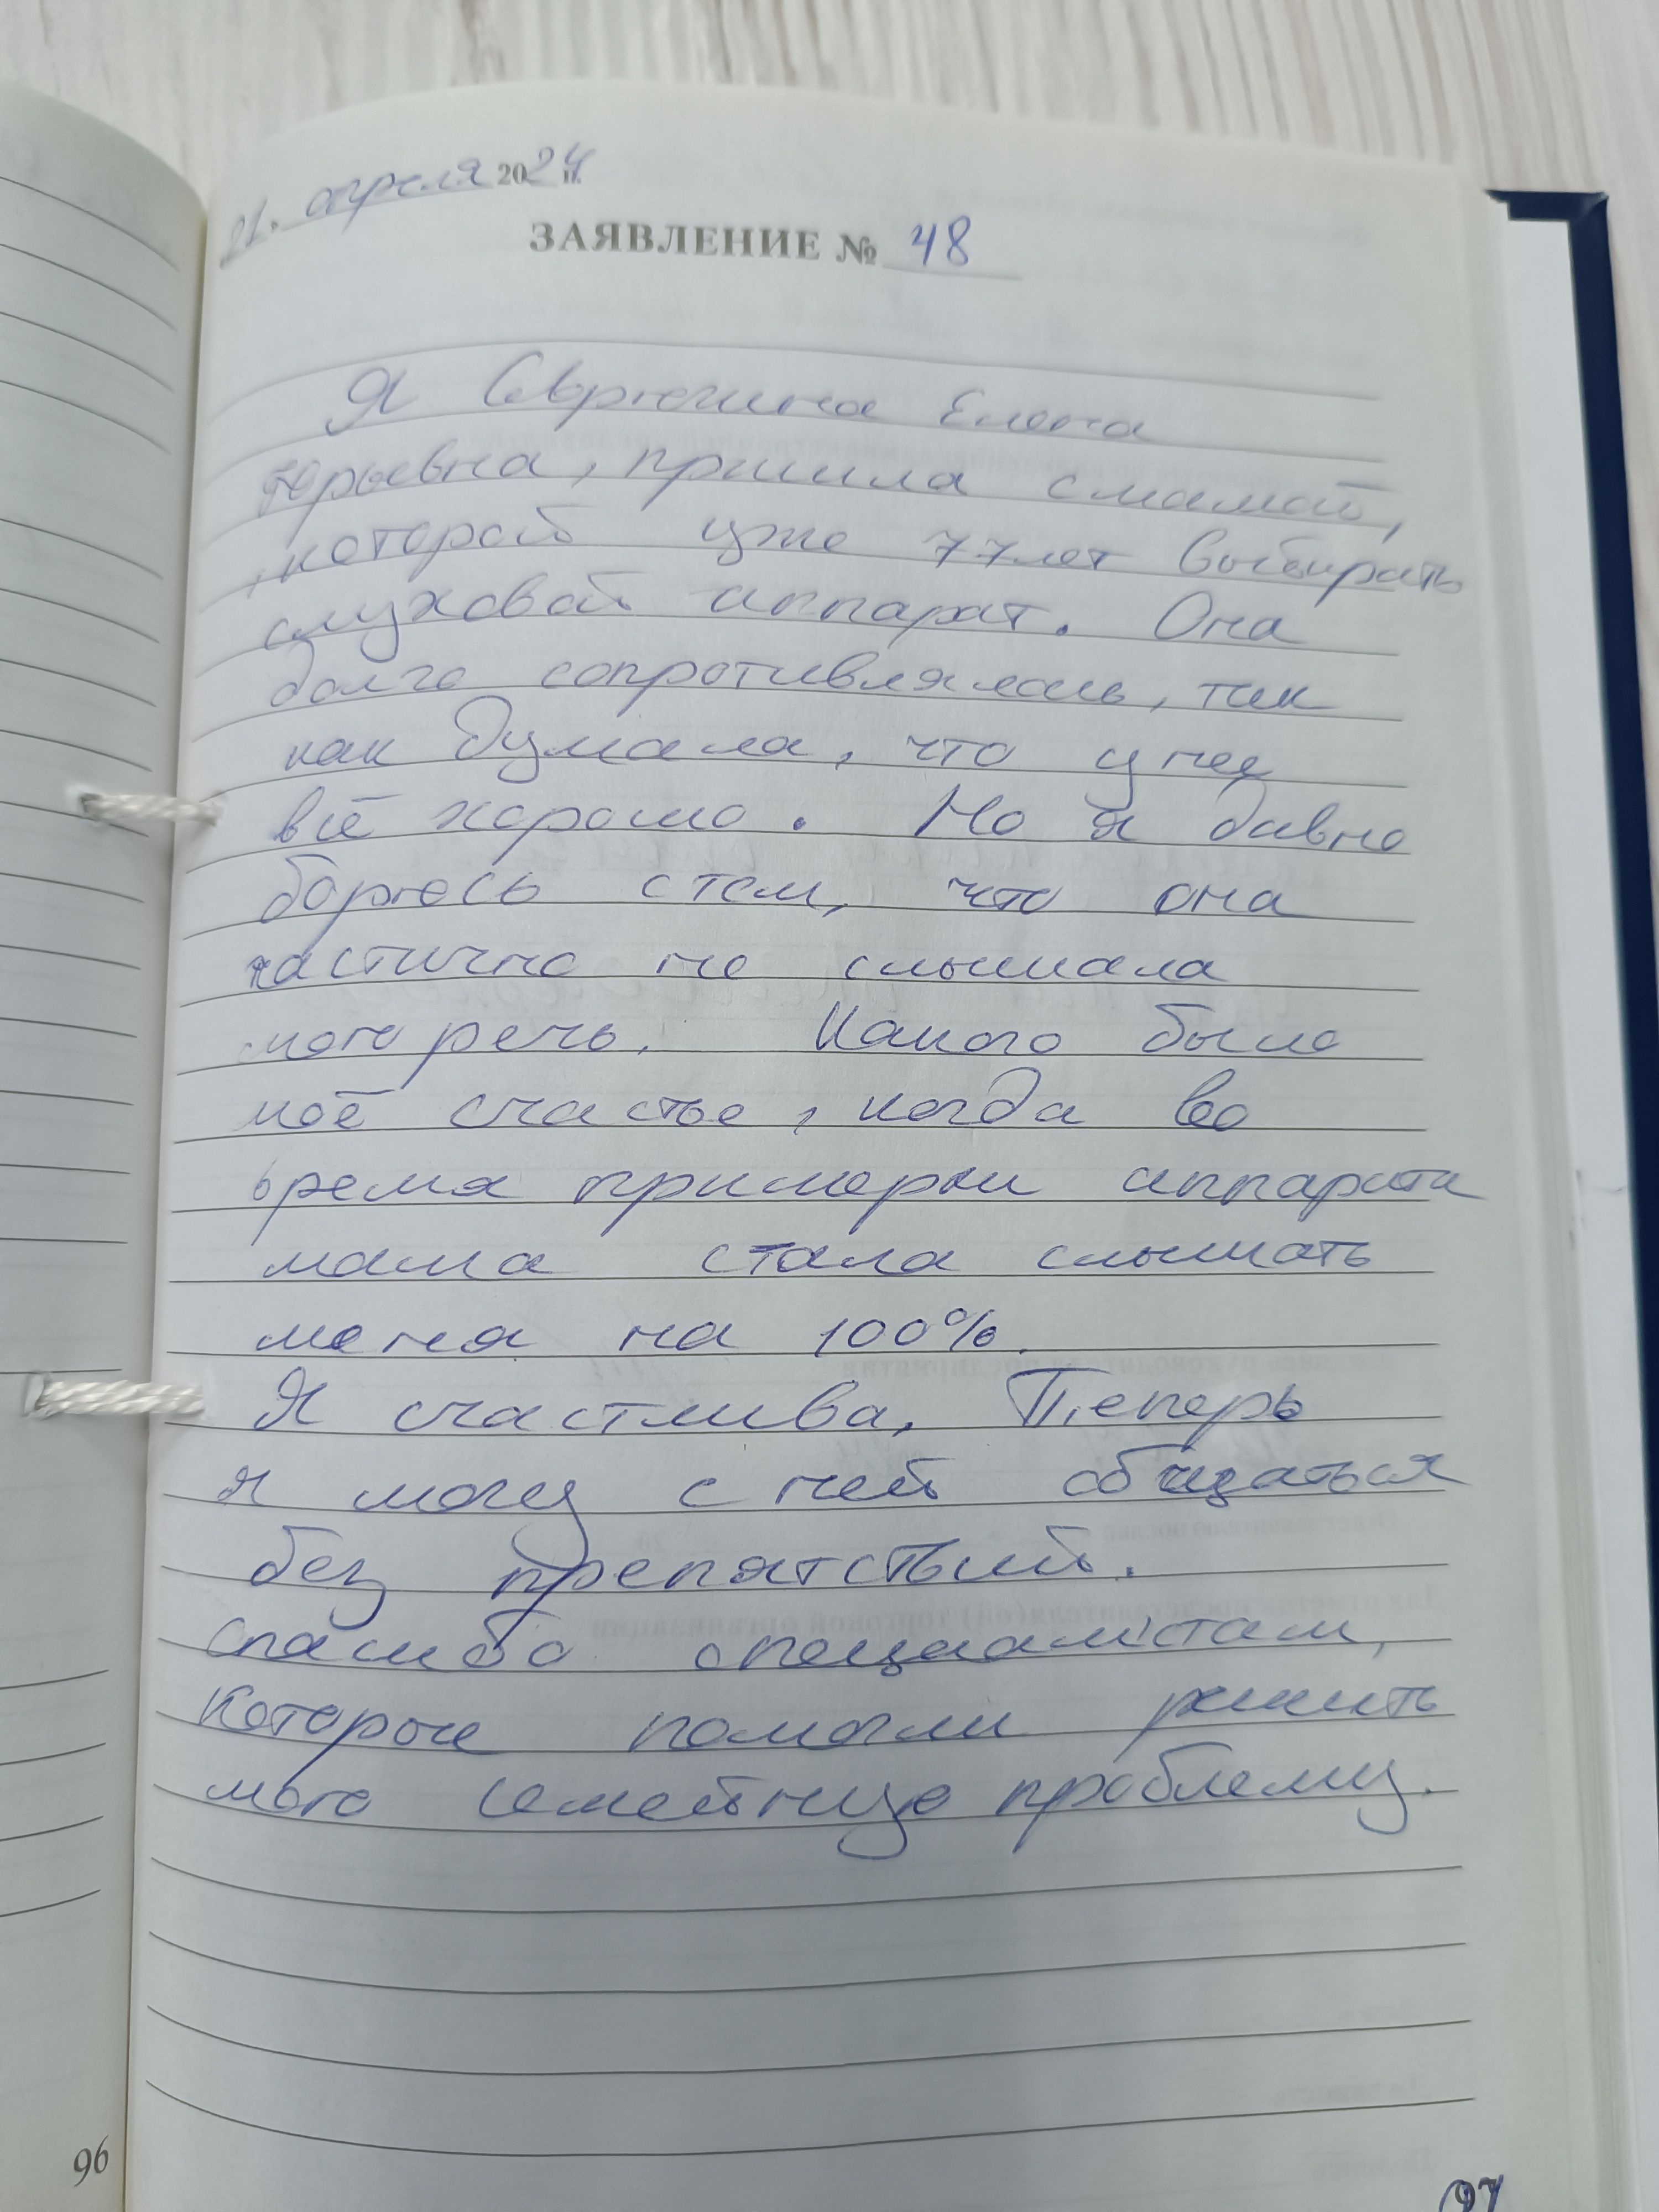 21. апреля 2024 г.
ЗАЯВЛЕНИЕ № 48
Я Севрюгина Елена
Юрьевна, пришла с мамой,
которой уже 77 лет выбирать
слуховой аппарат. Она
долго сопротивлялась, так
как думала, что у нее
всё хорошо. Но я давно
борюсь с тем, что она
частично не слышала
мою речь. Каково было
моё счастье, когда во
время примерки аппарата
мама стала слышать
меня на 100%.
Я счастлива, Теперь
я могу с ней общаться
без препятствий.
Спасибо специалистам,
которые помогли решить
мою семейную проблему.
96
97